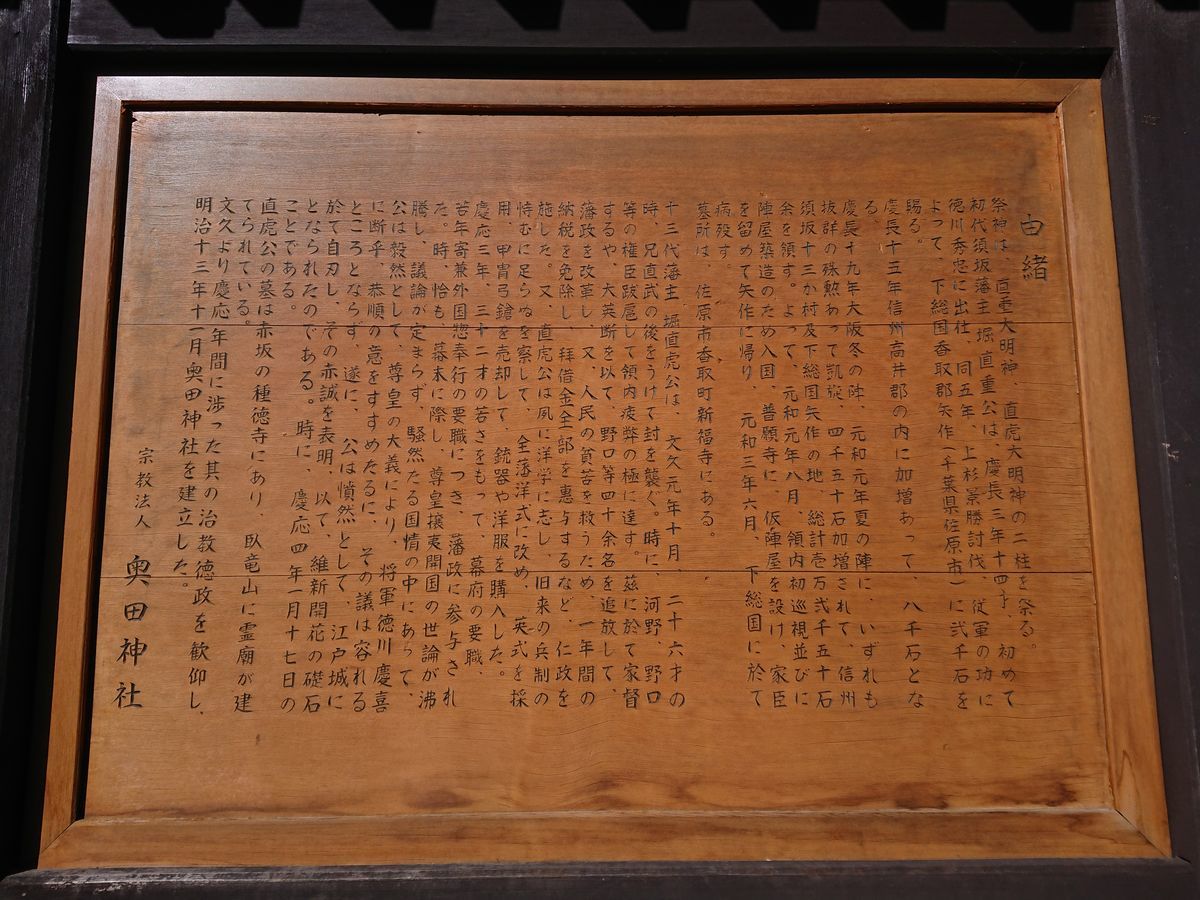 由緒
祭神は、直重大明神、直虎大明神の二柱を祭る。
初代須坂藩主 堀直重公は、慶長三年十四才、初めて
徳川秀忠に出仕、同五年、上杉景勝討伐、従軍の功に
よって、下総国香取郡矢作(千葉県佐原市)に弐千石を
賜る。
慶長十五年信州高井郡の内に加増あって、八千石とな
る。
慶長十九年大阪冬の陣、元和元年夏の陣に、いずれも
抜群の殊勲あって凱旋、四千五十石加増されて、信州
須坂十三か村及下総国矢作の地、総計壱万弐千五十石
余を領す。よって、元和元年八月、領内初巡視並びに
陣屋築造のため入国、普願寺に、仮陣屋を設け、家臣
を留めて矢作に帰り、元和三年六月、下総国に於て
病歿す。
墓所は、佐原市香取町新福寺にある。
十三代藩主 堀直虎公は、文久元年十月、二十六才の
時、兄直武の後をうけて封を襲ぐ。時に、河野、野口
等の権臣跋扈して領内疲弊の極に達す。茲に於て家督
するや、大英断を以て、野口等四十余名を追放して、
藩政を改革し、又、人民の貧苦を救うため、一年間の
納税を免除し、拝借金全部を恵与するなど、仁政を
施した。又、直虎公は夙に洋学に志し、旧来の兵制の
恃むに足らぬを察して、全藩洋式に改め、英式を採
用、甲冑弓鎗を売却して、銃器や洋服を購入した。
慶応三年、三十二才の若さをもって、幕府の要職、
若年寄兼外国惣奉行の要職につき、藩政に参与され
た。時、恰も、幕末に際し、尊皇攘夷開国の世論が沸
騰し、議論が定まらず、騒然たる国情の中にあって、
公は毅然として、尊皇の大義により、将軍徳川慶喜
に断乎、恭順の意をすすめたるに、その議は容れる
ところとならず、遂に、公は憤然として、江戸城に
於て自刃し、その赤誠を表明、以て、維新開花の礎石
となられたのである。時に、慶応四年一月十七日の
ことである。
直虎公の墓は赤坂の種徳寺にあり、臥竜山に霊廟が建
てられている。
文久より慶応年間に渉った其の治教徳政を歓仰し、
明治十三年十一月奥田神社を建立した。
宗教法人 奥田神社